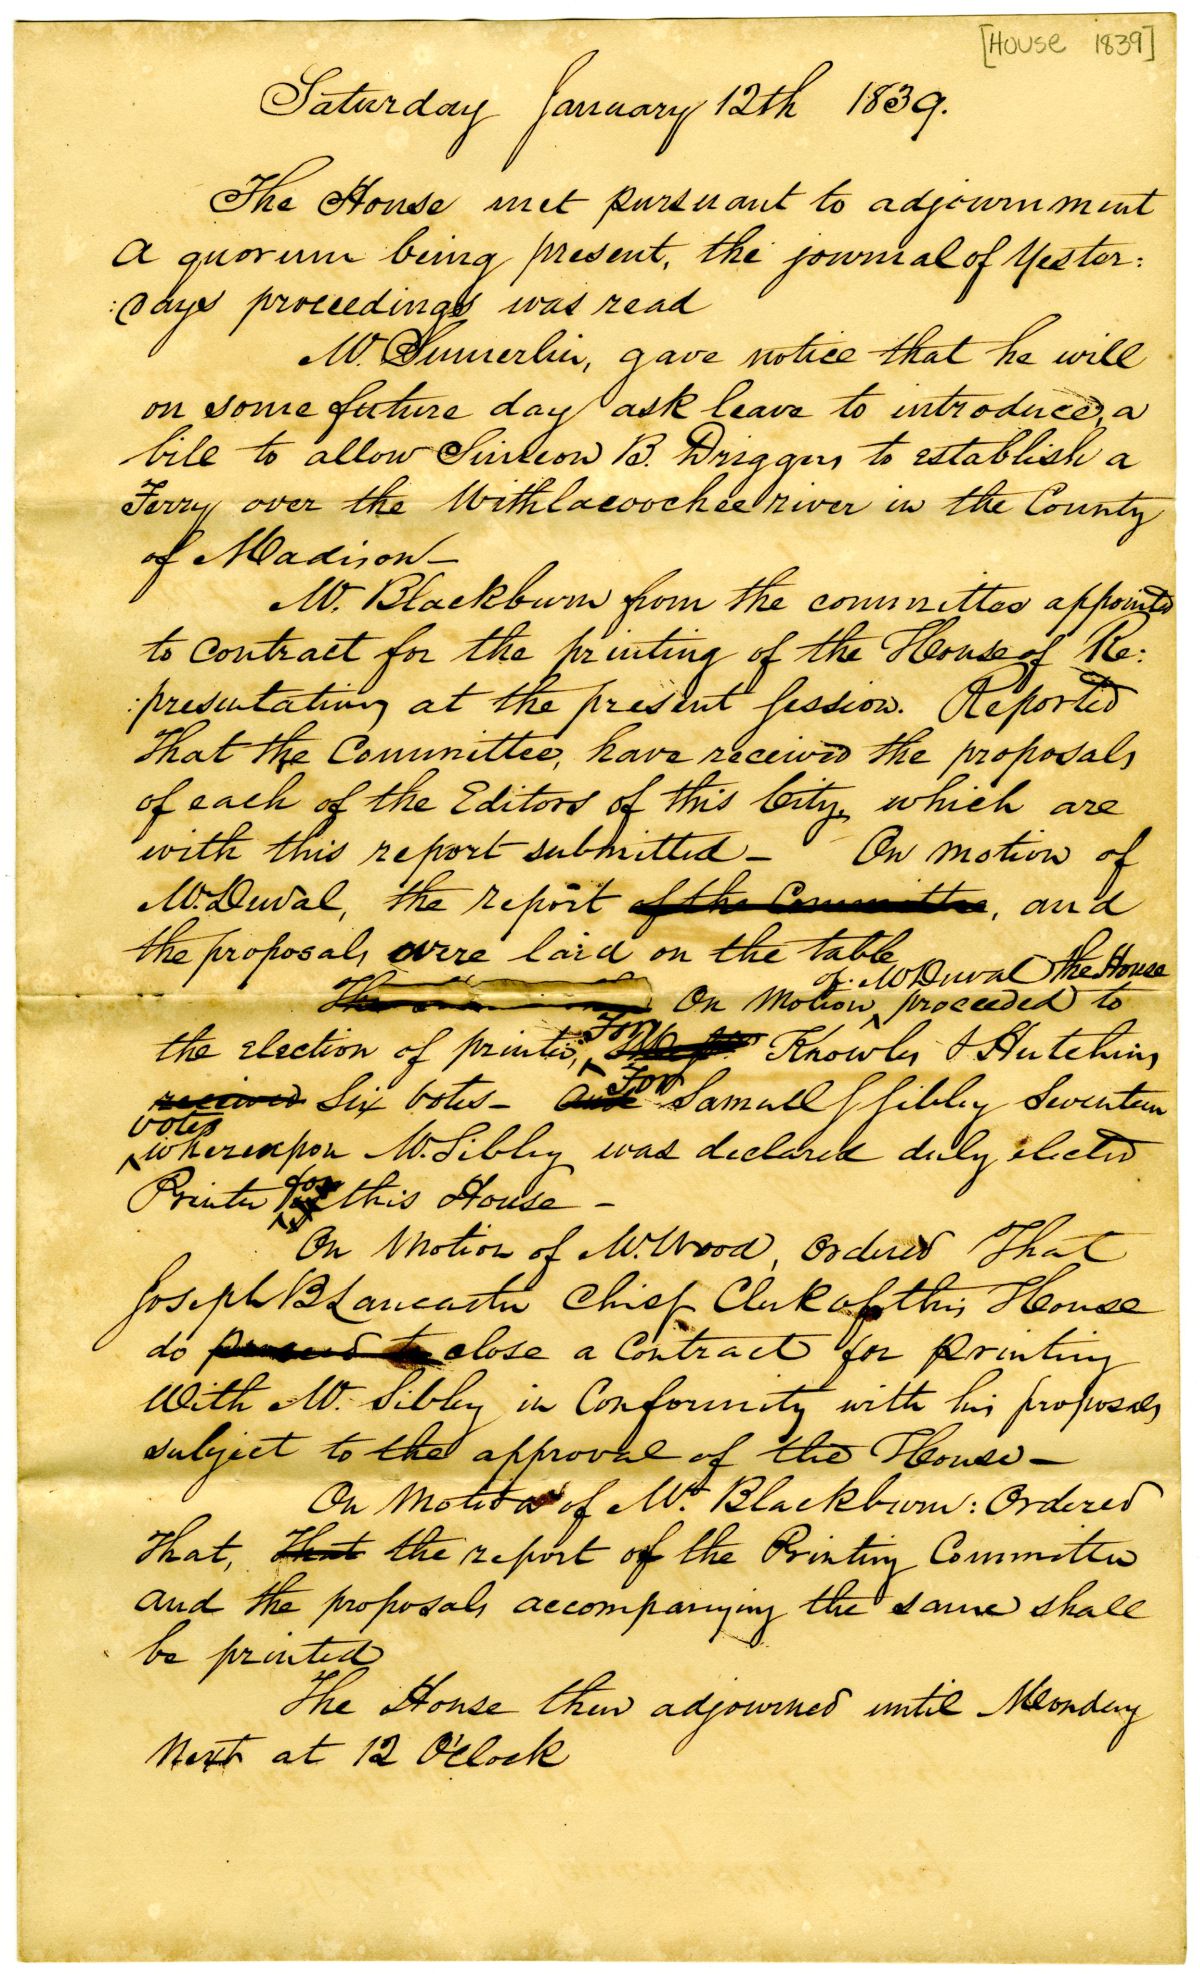 [House 1839]
Saturday January 12th 1839.
The House met pursuant to adjournment
a quorum being present, the journal of Yester:
:days proceedings was read
Mr. Summerlin, gave notice that he will
on some future day ask leave to introduce, a
bill to allow Simeon B. Driggers to establish a
Ferry over the Withlacoochee river in the County
of Madison—
Mr. Blackburn from the committee appointed
to contract for the printing of the House of Re:
:presentatives at the present Session. Reported
That the Committee, have received the proposals
of each of the Editors of this City, which are
with this report submitted— On motion of
Mr. Duval, the report of the Committee, and
the proposals were laid on the table
of Mr Duval the House
The On Motion, proceeded to
For
the election of printer, Knowles & Hutchins
For
received Six votes— and Samuel S Sibley Seventeen
votes
whereupon Mr. Sibley was declared duly elected
for
Printer this House—
On Motion of Mr. Wood, Ordered That
Joseph B Lancaster Chief Clerk of this House
do proceed to close a Contract for printing
With Mr. Sibley in Conformity with his proposals
subject to the approval of the House—
On Motion of Mr. Blackburn: Ordered
That, That the report of the Printing Committee
and the proposals accompanying the same shall
be printed
The House then adjourned until Monday
Next at 12 O'Clock